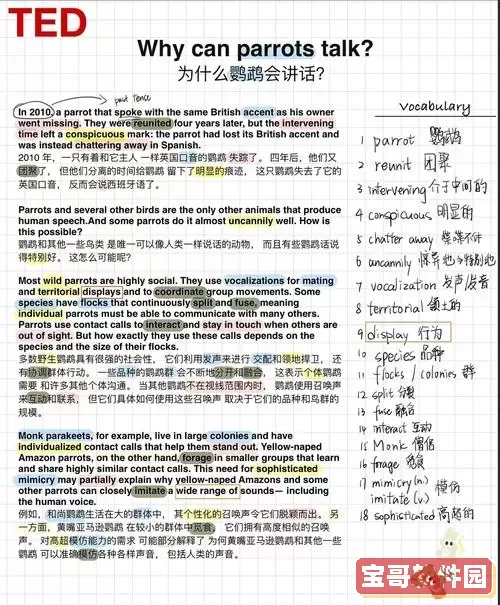 TED
Why can parrots talk?
为什么鹦鹉会讲话?
past tense
In 2010, a parrot that spoke with the same British accent as his owner
went missing. They were reunited four years later, but the intervening
time left a conspicuous mark: the parrot had lost its British accent and
was instead chattering away in Spanish.
2010 年，一只有着和它主人 一样英国口音的鹦鹉 失踪了。 四年后，他们又
团聚了， 但他们分离的时间给鹦鹉 留下了明显的痕迹， 这只鹦鹉失去了它的
英国口音， 反而会说西班牙语了。
Parrots and several other birds are the only other animals that produce
human speech.And some parrots do it almost uncannily well. How is
this possible?
鹦鹉和其他一些鸟类 是唯一可以像人类一样说话的动物， 而且有些鹦鹉话说
得特别好。 这怎么可能呢?
Most wild parrots are highly social. They use vocalizations for mating
and territorial displays and to coordinate group movements. Some
species have flocks that continuously split and fuse, meaning
individual parrots must be able to communicate with many others.
Parrots use contact calls to interact and stay in touch when others are
out of sight. But how exactly they use these calls depends on the
species and the size of their flocks.
多数野生鹦鹉具有很强的社会性， 它们利用发声来进行 交配和领地捍卫， 还
有协调群体行动。 一些品种的鹦鹉群 会不断地分开和融合， 这表示个体鹦鹉
需要 和许多其他个体沟通。 当其他鹦鹉不在视线范围内时， 鹦鹉使用召唤声
来互动和联系， 但它们具体如何使用这些召唤声 取决于它们的品种和鸟群的
规模。
Monk parakeets, for example, live in large colonies and have
individualized contact calls that help them stand out. Yellow-naped
Amazon parrots, on the other hand, forage in smaller groups that learn
and share highly similar contact calls. This need for sophisticated
mimicry may partially explain why yellow-naped Amazons and some
other parrots can closely imitate a wide range of sounds— including
the human voice.
例如，和尚鹦鹉生活在大的群体中， 其个性化的召唤声令它们脱颖而出。 另
一方面，黄嘴亚马逊鹦鹉 在较小的群体中觅食， 它们拥有高度相似的召唤
声。 对高超模仿能力的需求 可能部分解释了 为何黄嘴亚马逊鹦鹉和其他一些
鹦鹉 可以准确模仿各种各样声音， 包括人类的声音。
vocabulary
1 parrot 鹦鹉
2 reunit 团聚
3 intervening 介于中间的
4 conspicuous 明显的
5 chatter away 喋喋不休
6 uncannily 惊异地 特别地
7 vocalization 发声/发音
8 territorial 领土的
9 display 行为
10 species 品种
11 flocks / colonies 群
12 split 分裂
13 fuse 融合
14 interact 互动
15 Monk 僧侣
16 forage 觅食
17 mimicry (n.) 模仿
imitate (v.)
18 sophisticated 高超的
宝哥软件园